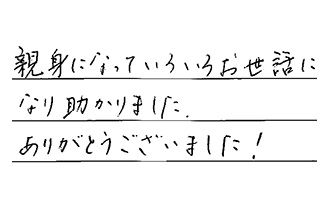 親身になっていろいろお世話に
なり助かりました.
ありがとうございました!